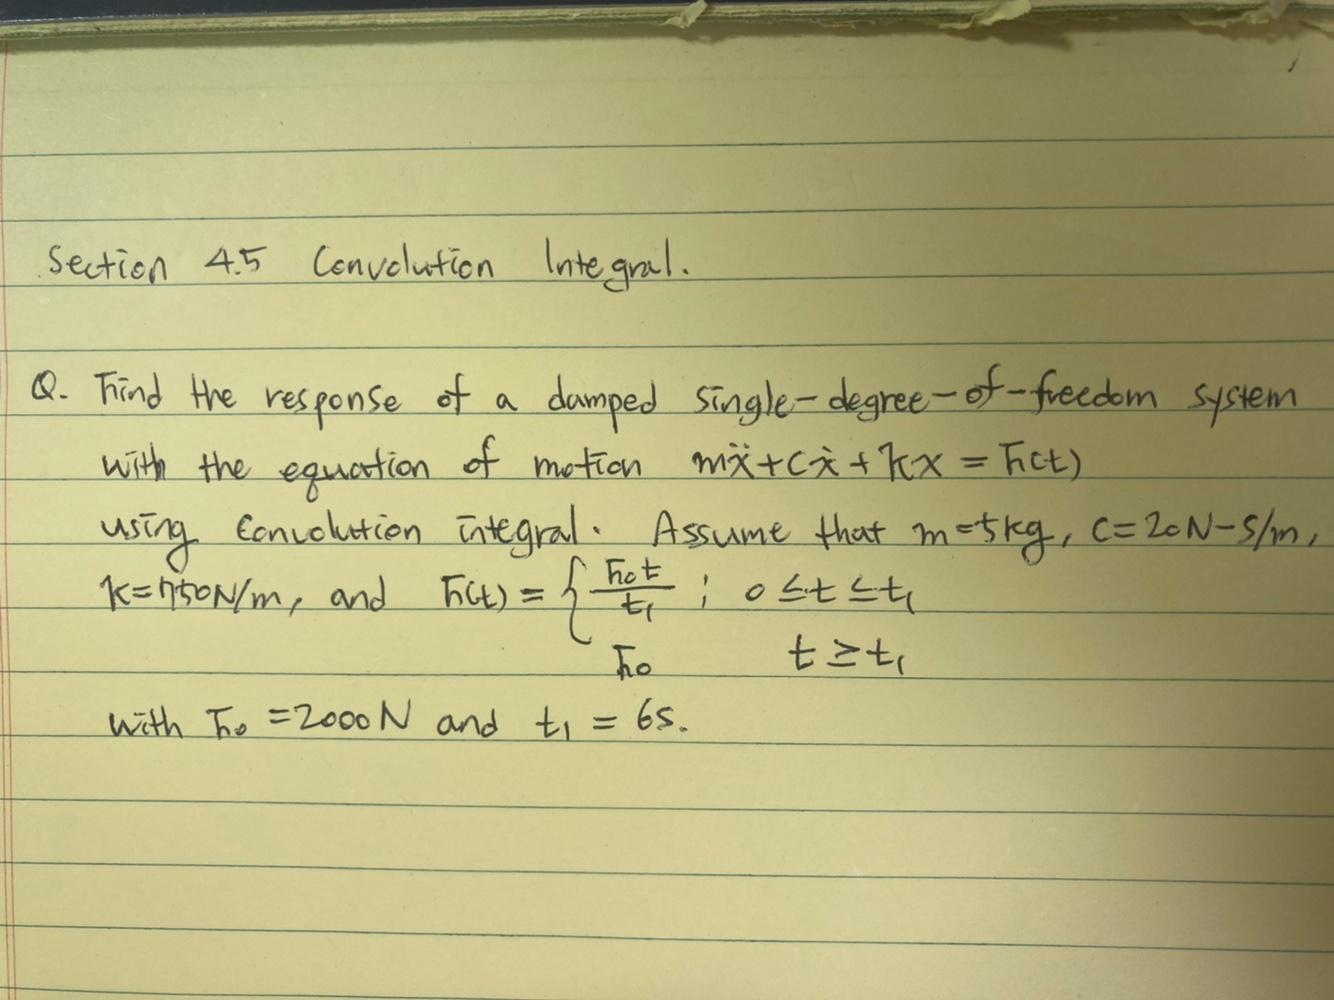 Section 4.5 Convolution Integral.
Q. Find the response of a damped single-degree-of-freedom system
with the equation of motion mẍ+cẋ+kx = F(t)
using convolution integral. Assume that m=5kg, c=20N-s/m,
k=750N/m, and F(t) = { F₀t/t₁ ; 0 ≤ t ≤ t₁
F₀ t ≥ t₁
with F₀ = 2000N and t₁ = 6s.